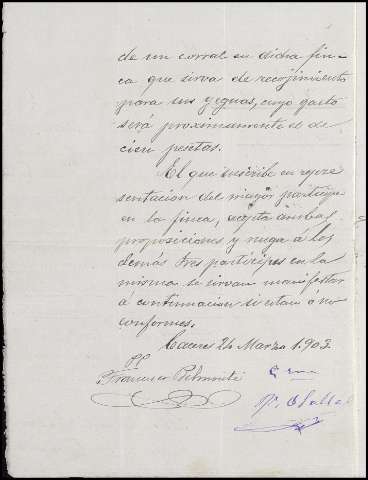 de un corral en dicha fin-
ca que sirva de recojimiento
para sus yeguas, cuyo gasto
será proximamente el de
cien pesetas.
El que suscribe en repre
sentacion del mayor participe
en la finca, acepta ambas
proposiciones y ruega á los
demás tres participes en la
misma se sirvan manifestar
á continuacion si estan ó no
conformes.
Caceres 24 Marzo 1.903.
PP
Francisco